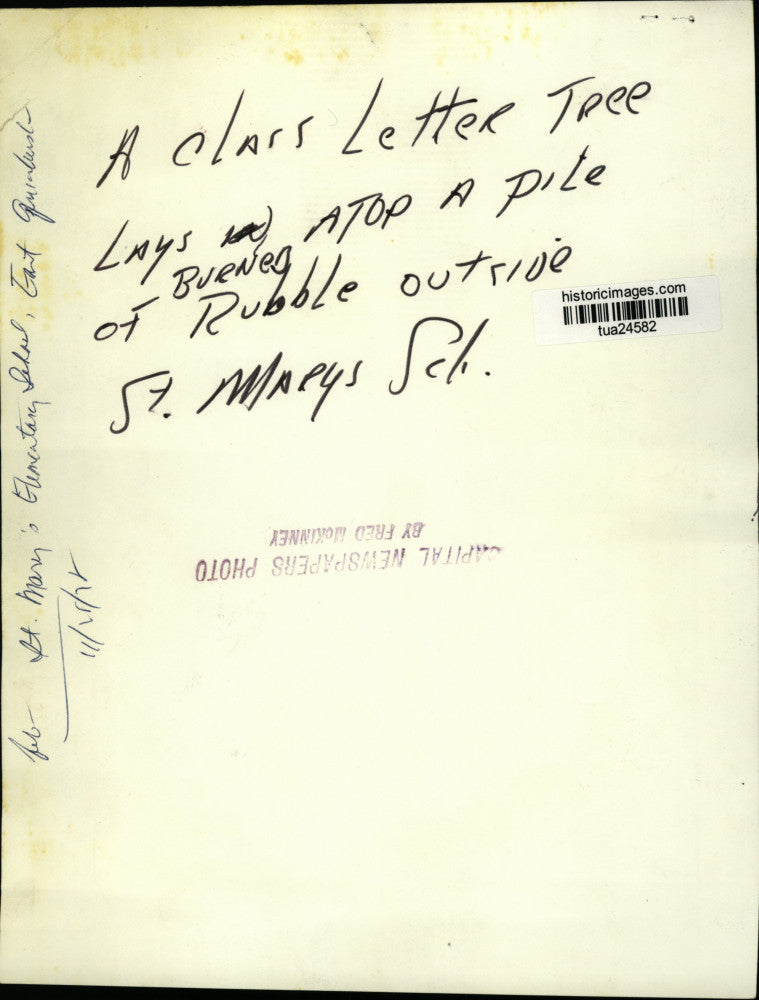 A Class Letter Tree
Lays ATOP A Pile
Burned
of Rubble outside
St. Marys Sch.
historicimages.com
tua24582
CAPITAL NEWSPAPERS PHOTO
BY FRED McKINNEY
St. Mary's Elementary School, East